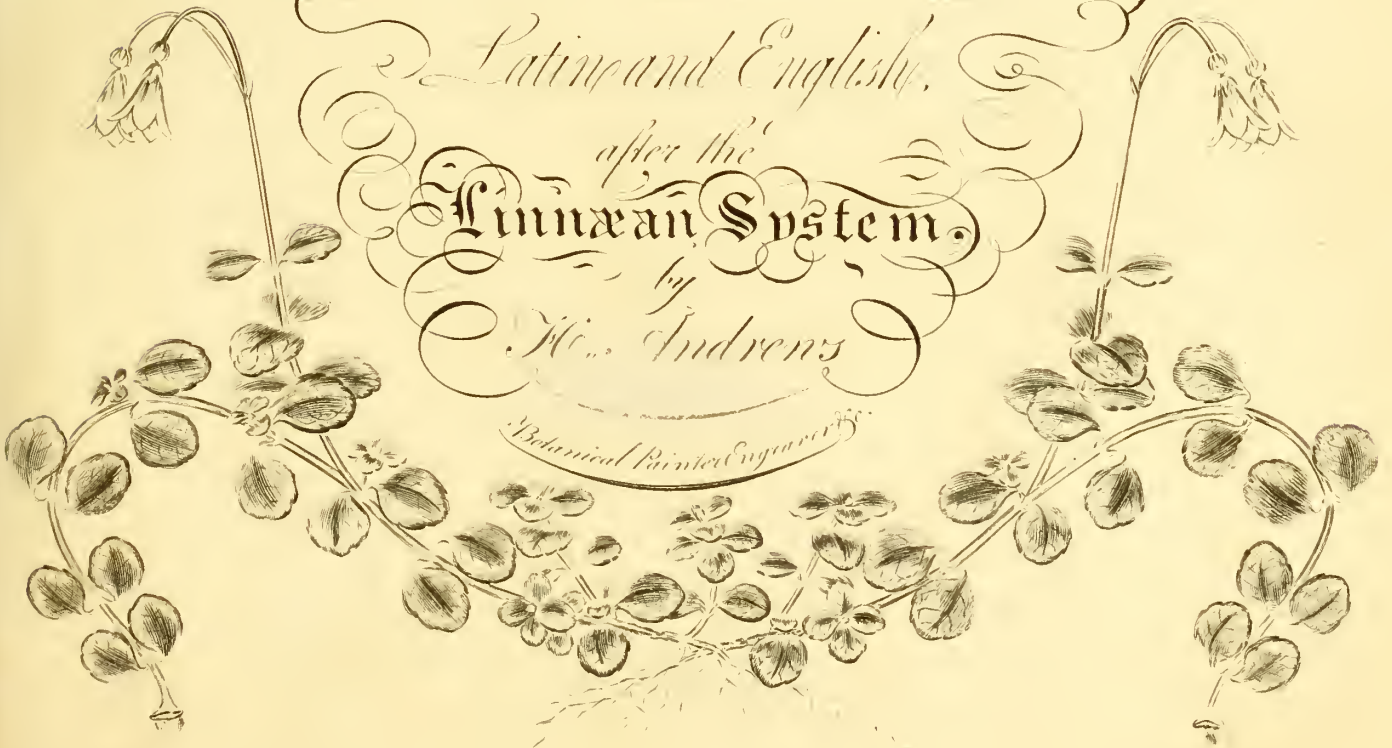 Latin and English.
after the
Linnæan System.
by
H. Andrews
Botanical Painter Engraver &c.